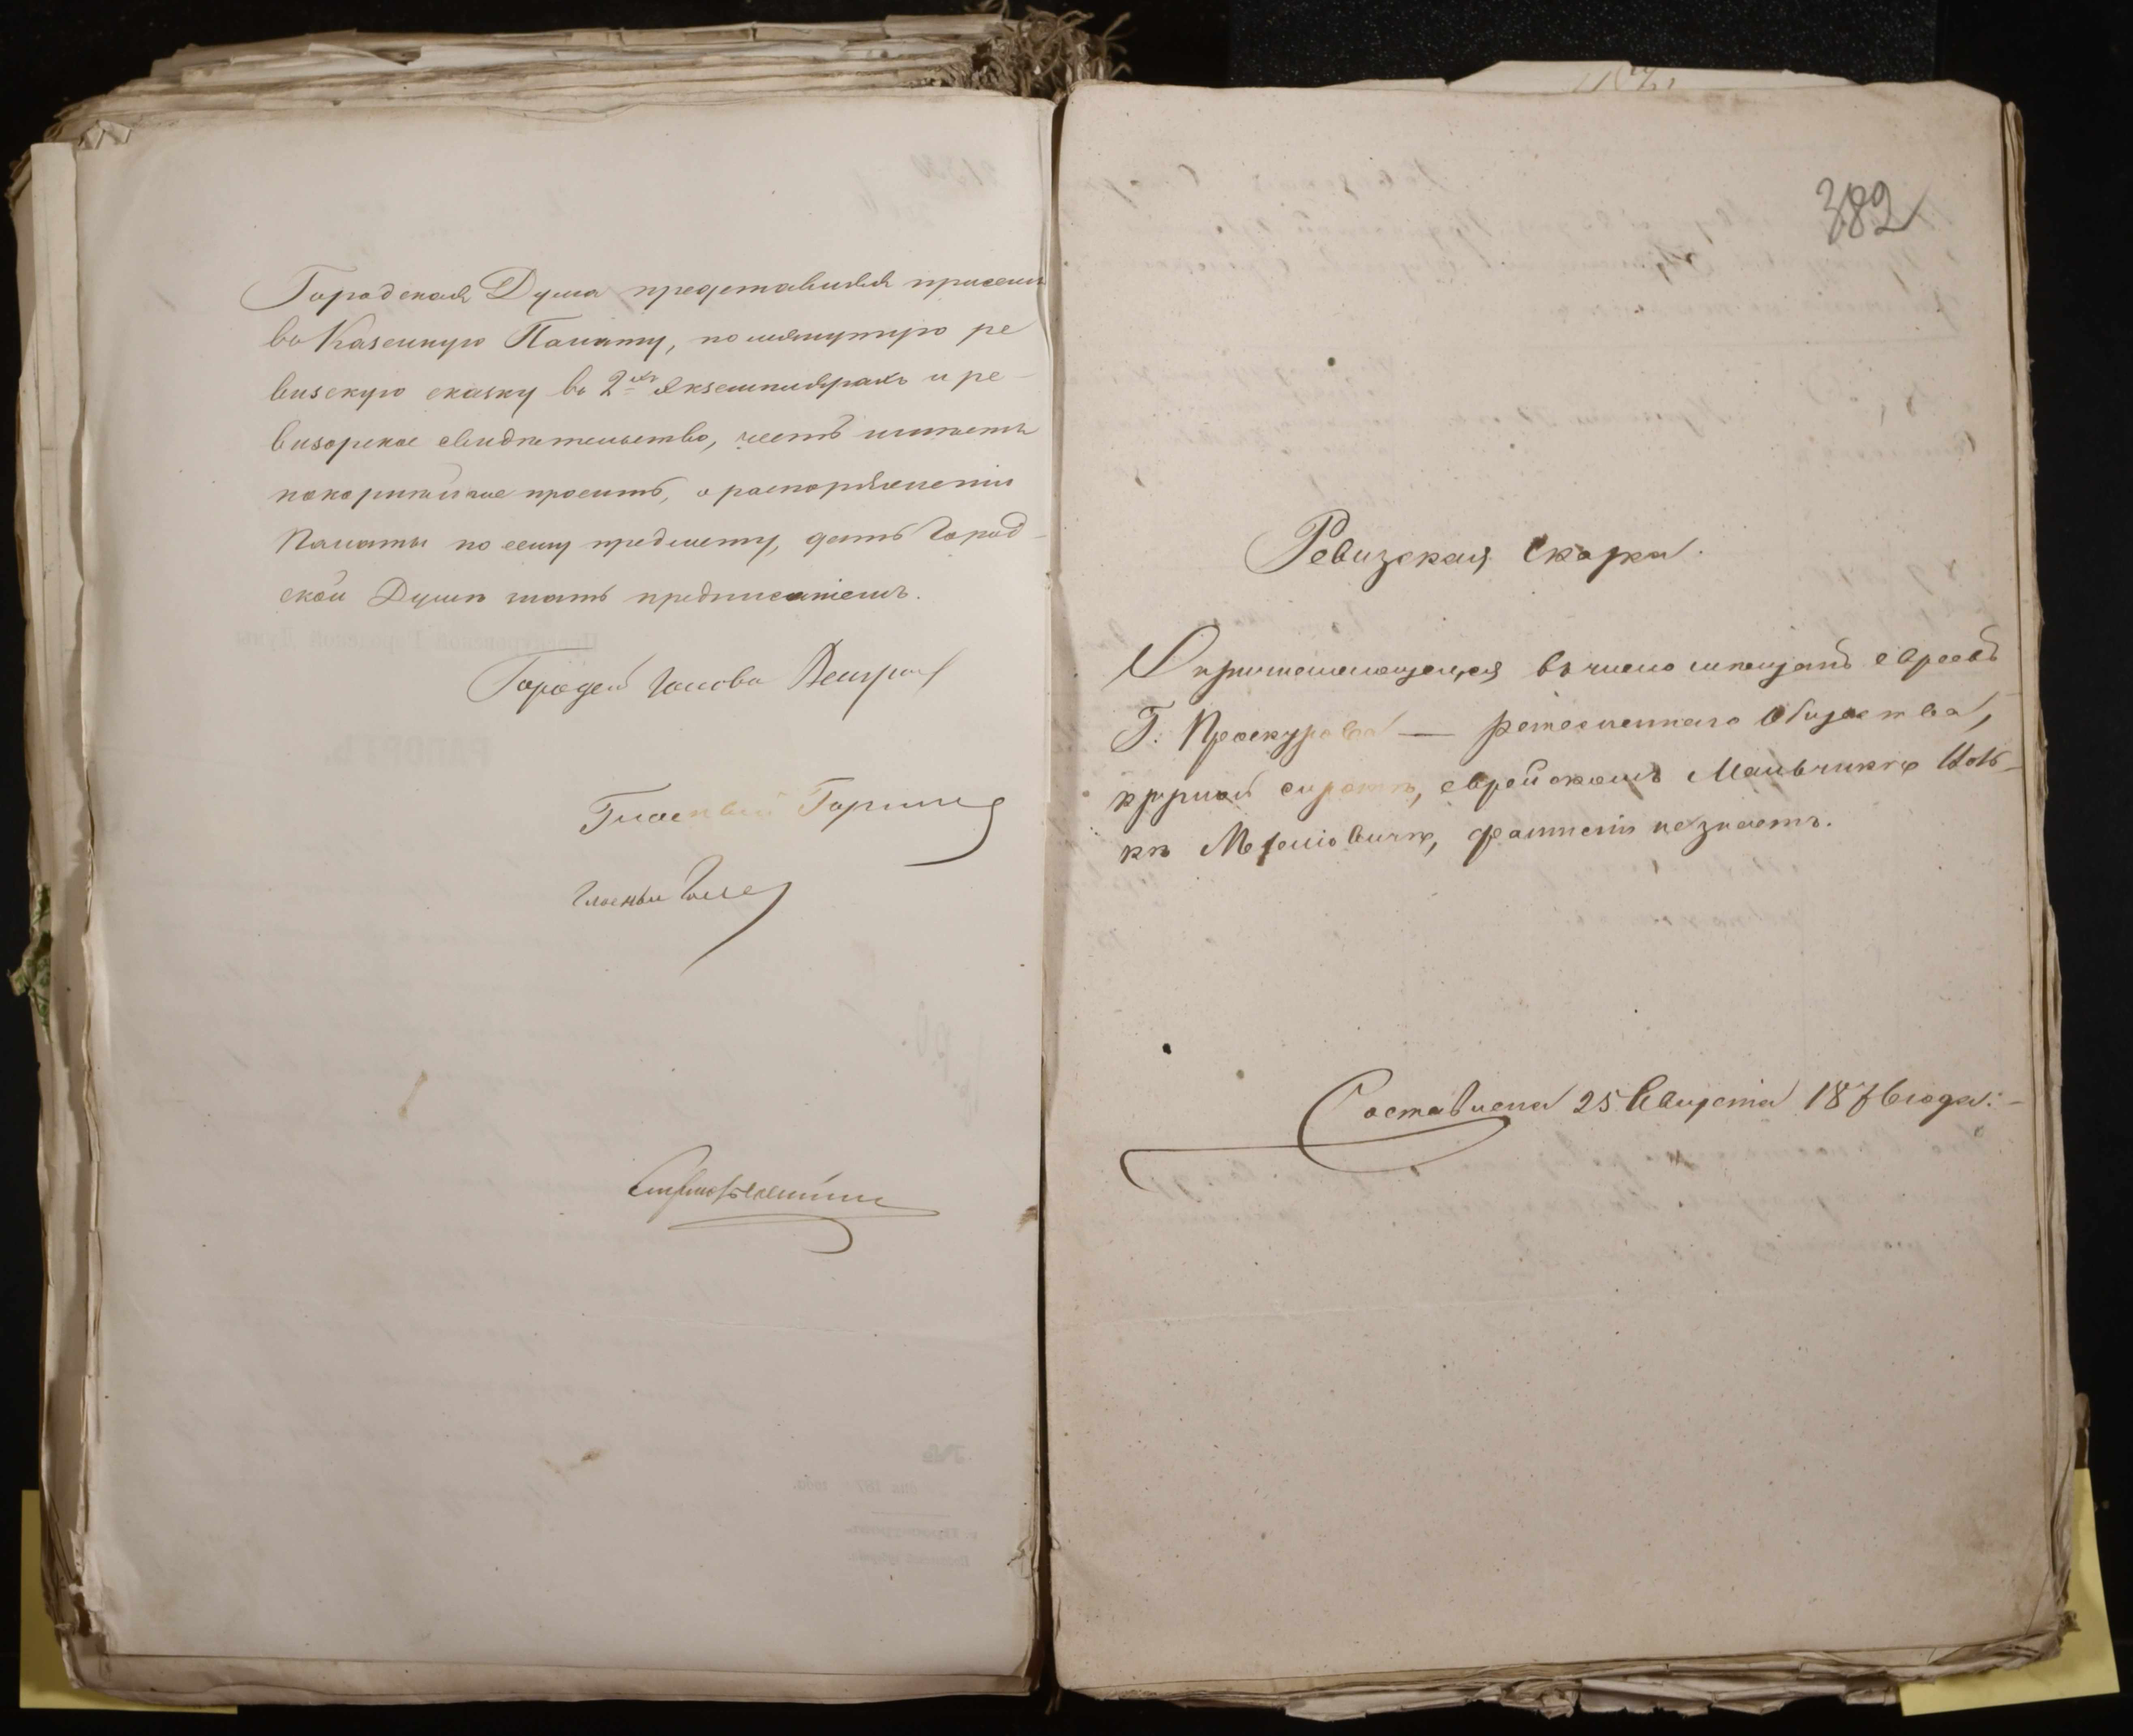 Городская Дума представляя при семъ
въ Казенную Палату, помянутую ре
визскую сказку въ 2хъ экземплярахъ и ре-
визорское свидѣтельство, честь имѣетъ
покорнѣйше просить, о распоряженіи
Палаты по сему предмету, дать Город-
ской Думѣ знать предписаніемъ.
Городской Голова
Гласный
Гласный
382
Ревизская Сказка.
О причисляющемся въ число мѣщанъ евреевъ
Г. Проскурова — ремесленнаго Общества,
круглой сиротѣ, еврейскомъ Мальчикѣ
фамиліи незнаетъ.
Составлена 25 Августа 1876 года.